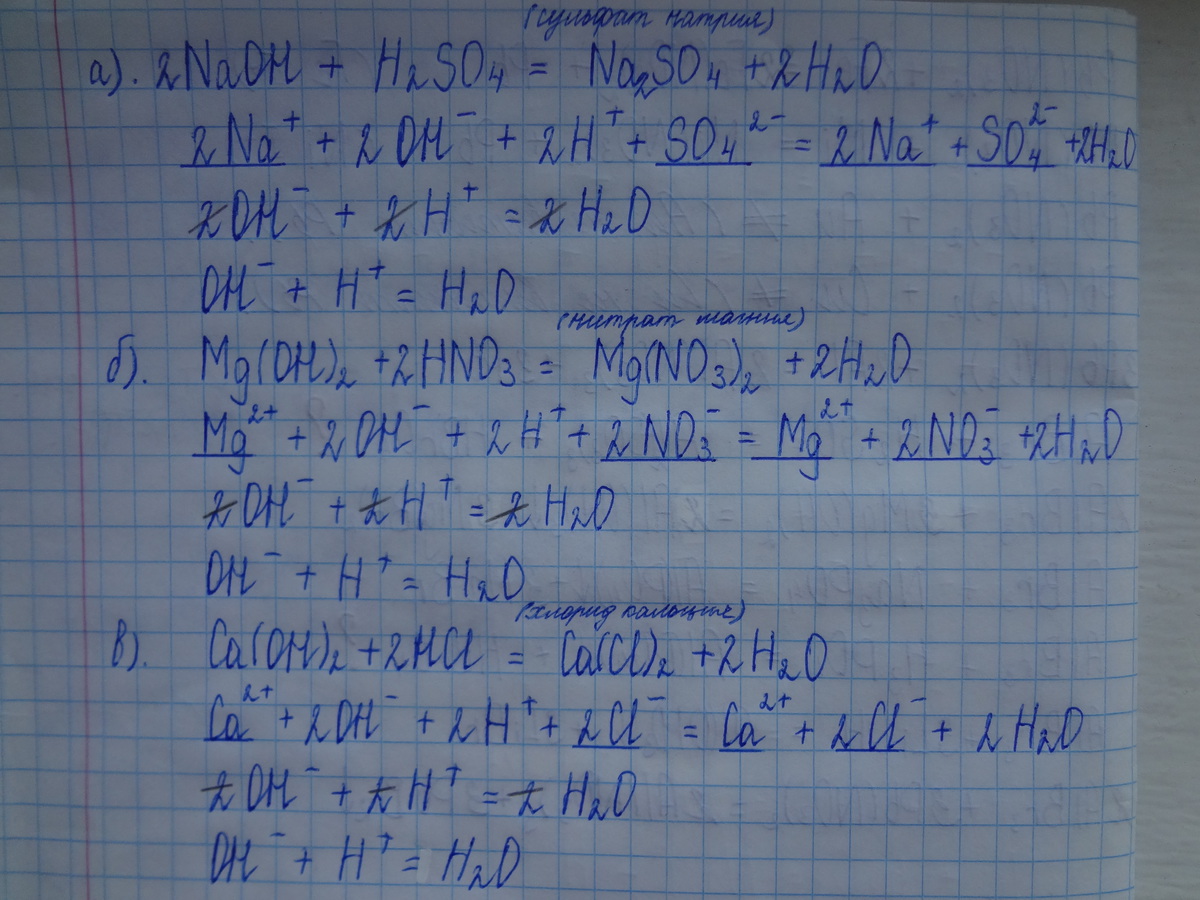 (сульфат натрия)
а). 2NaOH + H₂SO₄ = Na₂SO₄ + 2H₂O
2Na⁺ + 2OH⁻ + 2H⁺ + SO₄²⁻ = 2Na⁺ + SO₄²⁻ + 2H₂O
2OH⁻ + 2H⁺ = 2H₂O
OH⁻ + H⁺ = H₂O
(нитрат магния)
б). Mg(OH)₂ + 2HNO₃ = Mg(NO₃)₂ + 2H₂O
Mg²⁺ + 2OH⁻ + 2H⁺ + 2NO₃⁻ = Mg²⁺ + 2NO₃⁻ + 2H₂O
2OH⁻ + 2H⁺ = 2H₂O
OH⁻ + H⁺ = H₂O
(хлорид кальция)
в). Ca(OH)₂ + 2HCl = Ca(Cl)₂ + 2H₂O
Ca²⁺ + 2OH⁻ + 2H⁺ + 2Cl⁻ = Ca²⁺ + 2Cl⁻ + 2H₂O
2OH⁻ + 2H⁺ = 2H₂O
OH⁻ + H⁺ = H₂O